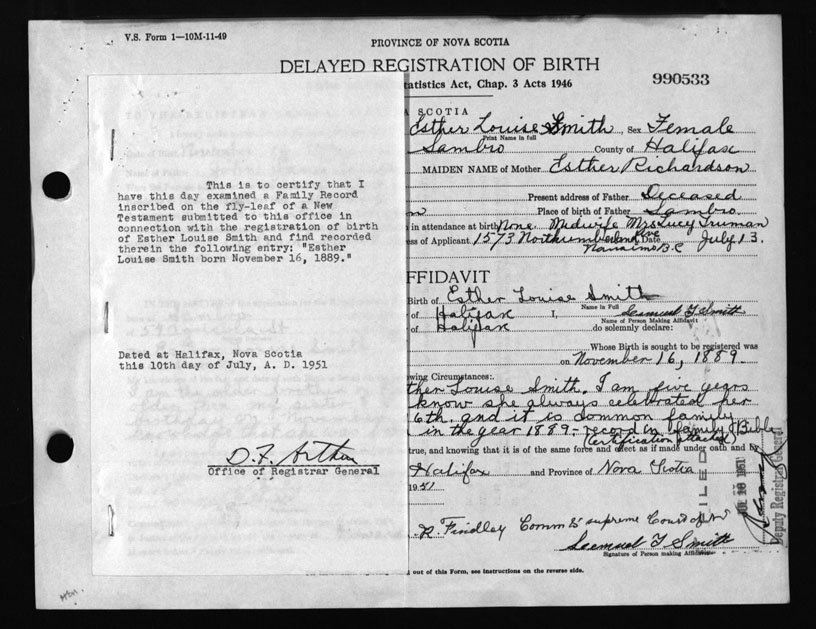 V.S. Form 1—10M-11-49
PROVINCE OF NOVA SCOTIA
DELAYED REGISTRATION OF BIRTH
tatistics Act, Chap. 3 Acts 1946
990533
A SCOTIA
Esther Louise Smith, Sex Female
Print Name in full
Sambro County of Halifax
MAIDEN NAME of Mother Esther Richardson
Present address of Father Deceased
Place of birth of Father Sambro
in attendance at birth None Midwife Mrs Lucy Truman
ss of Applicant 1573 Northumberland Ave Date July 13.
Nanaimo B.C
This is to certify that I
have this day examined a Family Record
inscribed on the fly-leaf of a New
Testament submitted to this office in
connection with the registration of birth
of Esther Louise Smith and find recorded
therein the following entry: "Esther
Louise Smith born November 16, 1889."
Dated at Halifax, Nova Scotia
this 10th day of July, A. D. 1951
D. F. Arthur
Office of Registrar General
FFIDAVIT
Birth of Esther Louise Smith
Name in Full
of Halifax I, Samuel T Smith
Name of Person Making Affidavit
of Halifax do solemnly declare:
Whose Birth is sought to be registered was
on November 16, 1889.
wing Circumstances:
ther Louise Smith. I am five years
know she always celebrated her
6th. and it is common family
in the year 1889.- record in family Bible
(Certification attached)
true, and knowing that it is of the same force and effect as if made under oath and by
Halifax and Province of Nova Scotia
1951
R. Findlay Comm. supreme Court of
Samuel T Smith
Signature of Person making Affidavit
out of this Form, see instructions on the reverse side.
FILED
JUL 16 1951
Deputy Registrar General